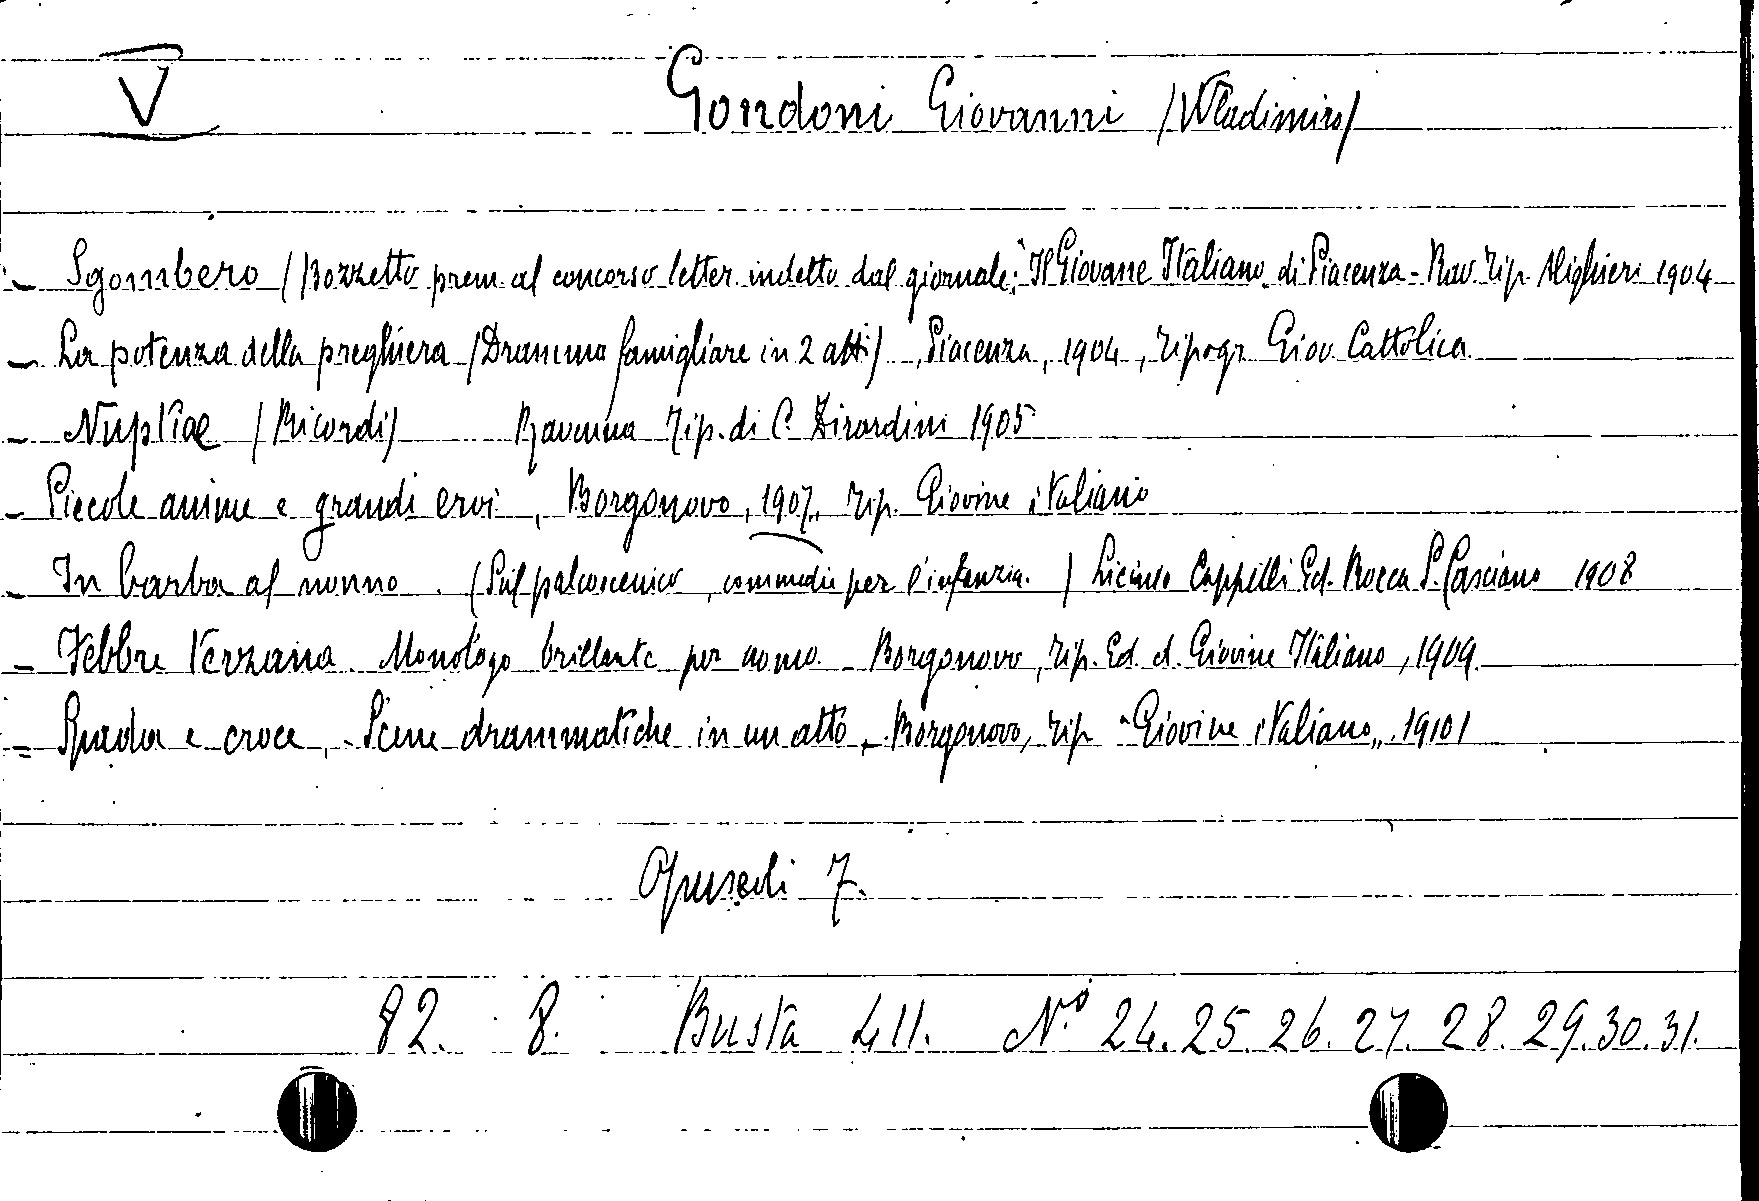 V
Gondoni Giovanni (Wladimiro)
- Sgombero (Bozzetto prem. al concorso letter. indetto dal giornale: "Il Giovane Italiano. di Piacenza - Rav. Tip. Alighieri 1904
- La potenza della preghiera (Dramma famigliare in 2 atti) , Piacenza, 1904, Tipogr. Giov. Cattolica
- Nuptiae (Ricordi) Ravenna Tip. di C. Zirardini 1905
- Piccole anime e grandi eroi, Borgonovo, 1907, Tip. Giovine italiano
- In barba al nonno. (Sul palcoscenico, commedie per l'infanzia.) Licinio Cappelli Ed. Rocca S. Casciano 1908
- Febbre terzana. Monologo brillante per uomo - Borgonovo, Tip. Ed. d. Giovine Italiano, 1909.
- Spada e croce, - Scene drammatiche in un atto, - Borgonovo, Tip "Giovine italiano„. 1910
Opuscoli 7.
82. 8. Busta 411. N.º 24. 25. 26. 27. 28. 29. 30. 31.